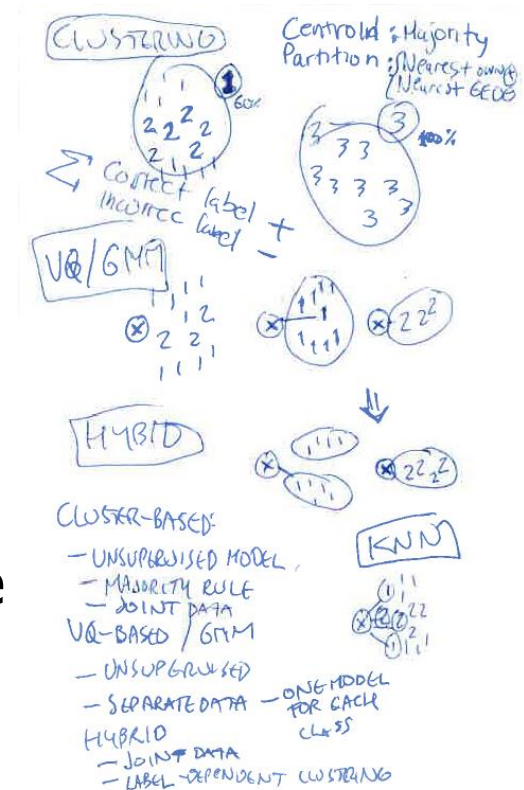 CLUSTERING
Centroid : Majority
Partition : Nearest own
Nearest
1
1 1
1
60%
2 2 2 2
2 2
1 1 1 1 1
3
100%
3
3 3
3 3 3 3
3
3
Σ Correct label +
Incorrec label -
VQ/GMM
1 1 1 1
1 1 1 2
X 2 2
1 1 1 1
X 1 1 1 1
1
1 1 1 1
X 2 2 2
⇓
HYBID
1 1 1 1
X
1 1 1 1
X 2 2 2 2
CLUSTER-BASED:
- UNSUPERVISED MODEL
- MAJORITY RULE
- JOINT DATA
KNN
1 1 1
X 2 2 2 2
2
1 1 1 1
e
VQ-BASED / GMM
- UNSUPERVISED
- SEPARATE DATA - ONE MODEL
FOR EACH
CLASS
HYBRID
- JOINT DATA
- LABEL-DEPENDENT CLUSTERING